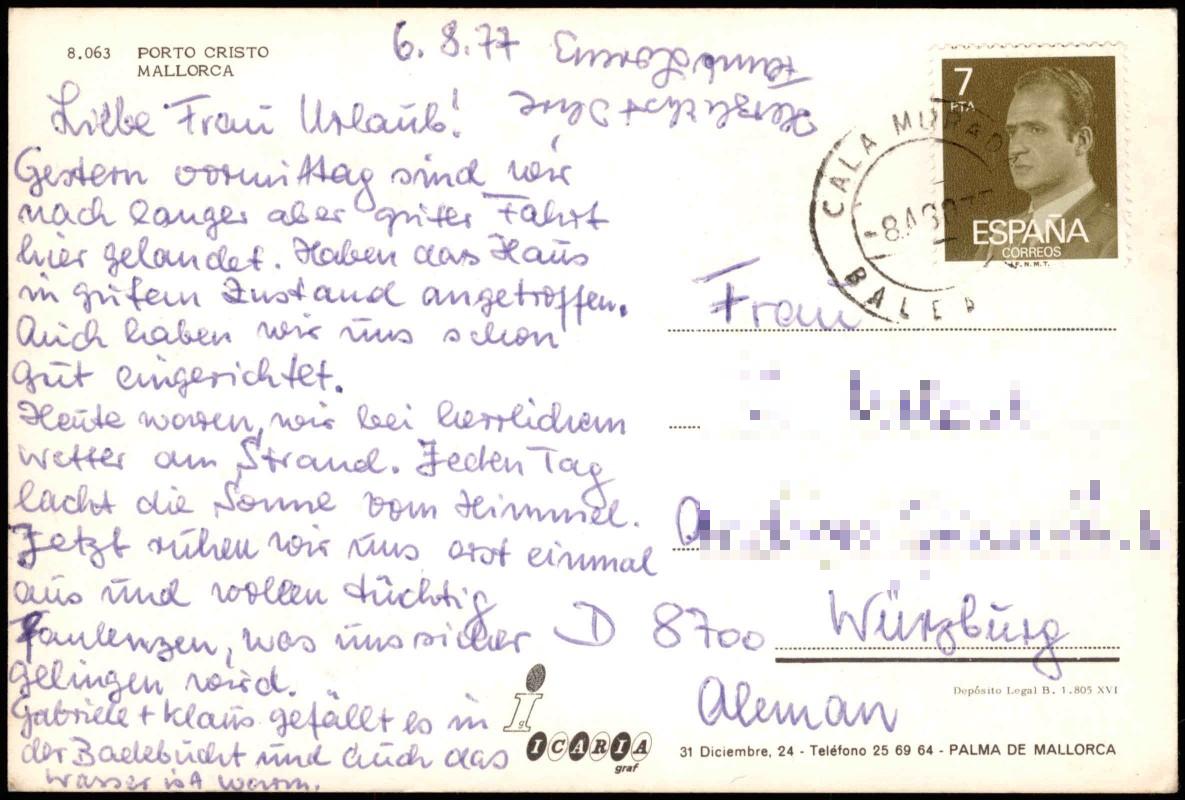 8.063 PORTO CRISTO
MALLORCA
6. 8. 77
Liebe Frau Urlaub!
Gestern vormittag sind wir
nach langer aber guter Fahrt
hier gelandet. Haben das Haus
in gutem Zustand angetroffen.
Auch haben wir uns schon
gut eingerichtet.
Heute waren wir bei herrlichem
Wetter am Strand. Jeden Tag
lacht die Sonne vom Himmel.
Jetzt ruhen wir uns erst einmal
aus und wollen tüchtig
faulenzen, was uns sicher
gelingen wird.
Gabriele + Klaus gefällt es in
der Badebucht und auch das
Wasser ist warm.
Herzlichst Ihre
Fam. Lorenz
7
PTA
ESPAÑA
CORREOS
F.N.M.T.
CALA MURADA
BALEA
Frau
D 8700 Würzburg
Aleman
Depósito Legal B. 1.805 XVI
ICARIA
graf
31 Diciembre, 24 - Teléfono 25 69 64 - PALMA DE MALLORCA